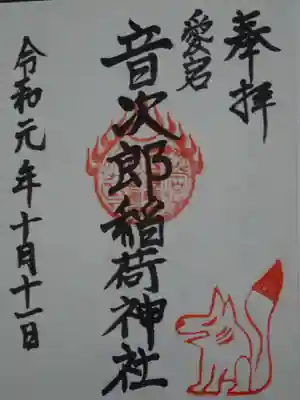 奉拝
愛宕
音次郎稲荷神社
令和元年十月十一日